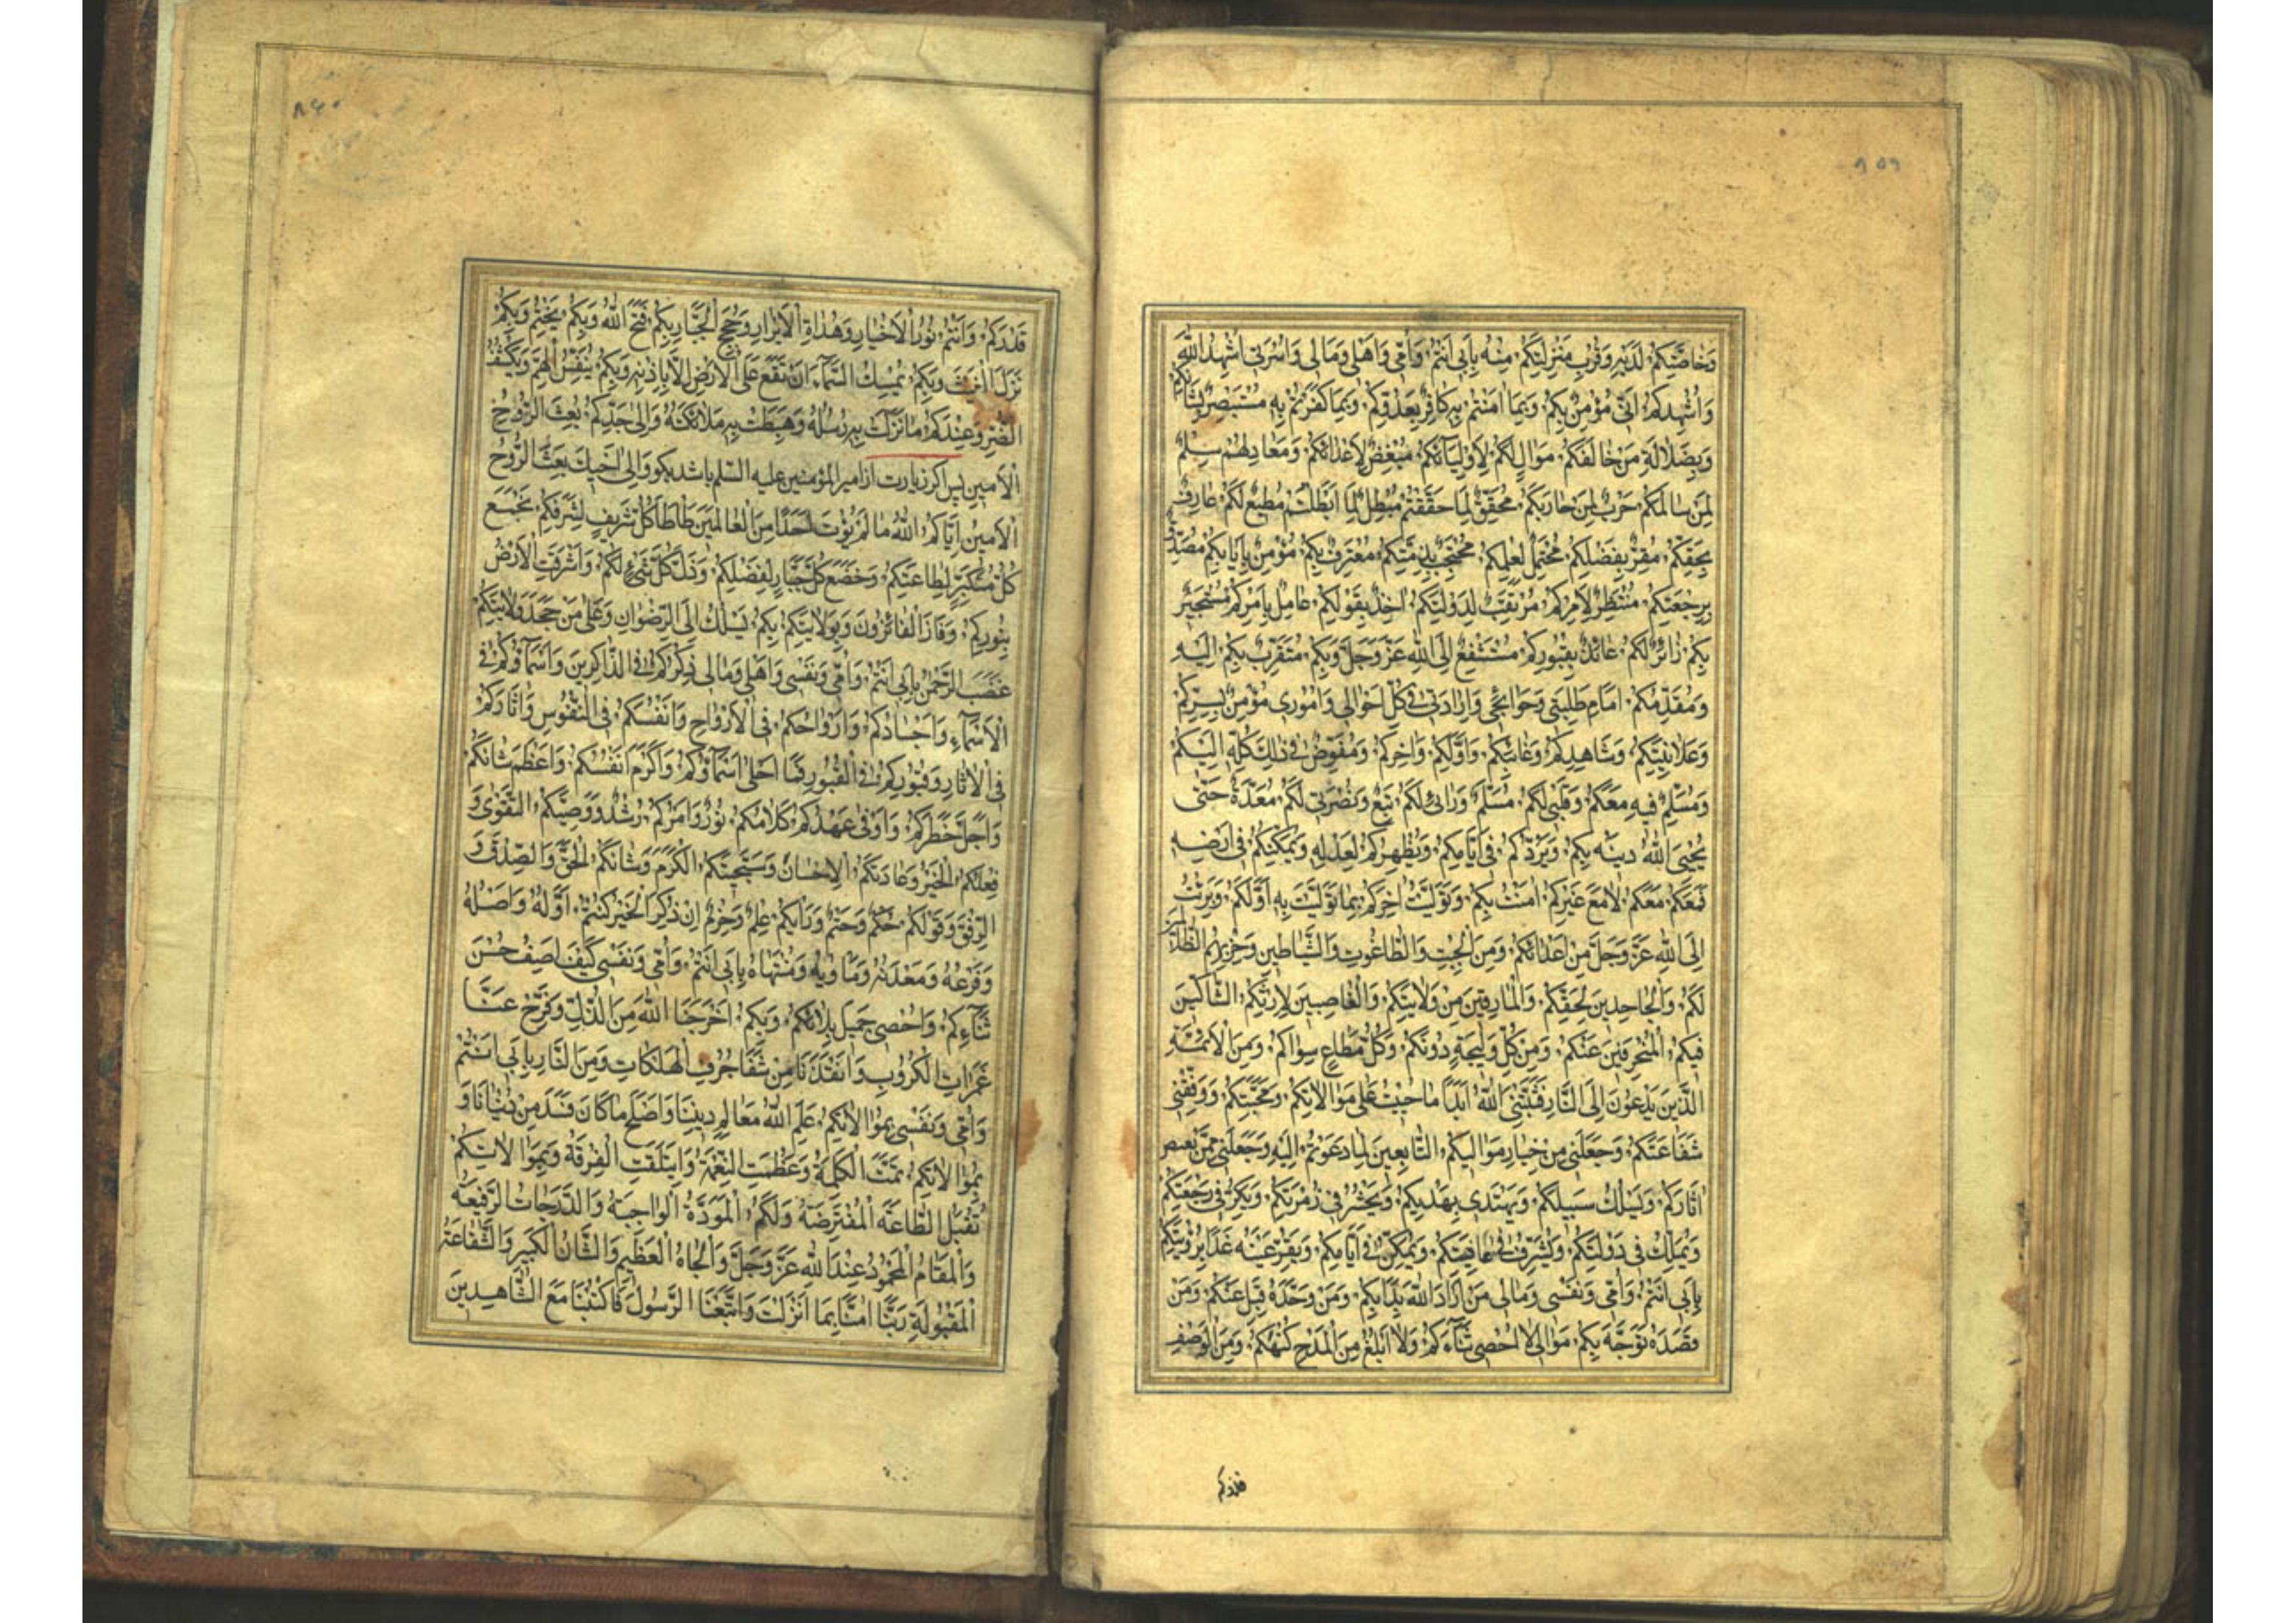 ۸۵۹
وَخَاصَّتِكُمْ لَدَيْهِ وَقُرْبِ مَنْزِلَتِكُمْ مِنْهُ بِاَبى اَنْتُمْ وَاُمّى وَاَهْلى وَمَالى وَاُسْرَتى اُشْهِدُ اللّٰهَ
وَاُشْهِدُكُمْ اَنّى مُؤْمِنٌ بِكُمْ وَبِمَا امَنْتُمْ بِه كَافِرٌ بِعَدُوِّكُمْ وَبِمَا كَفَرْتُمْ بِهِ مُسْتَبْصِرٌ بِشَاْنِكُمْ
وَبِضَلَالَةِ مَنْ خَالَفَكُمْ مُوَالٍ لَكُمْ لِاَوْلِيَآئِكُمْ مُبْغِضٌ لِاَعْدَائِكُمْ وَمُعَادٍ لَهُمْ سِلْمٌ
لِمَنْ سَالَمَكُمْ حَرْبٌ لِمَنْ حَارَبَكُمْ مُحَقِّقٌ لِمَا حَقَّقْتُمْ مُبْطِلٌ لِمَا اَبْطَلْتُمْ مُطيعٌ لَكُمْ عَارِفٌ
بِحَقِّكُمْ مُقِرٌّ بِفَضْلِكُمْ مُحْتَمِلٌ لِعِلْمِكُمْ مُحْتَجِبٌ بِذِمَّتِكُمْ مُعْتَرِفٌ بِكُمْ مُؤْمِنٌ بِاِيَابِكُمْ مُصَدِّقٌ
بِرَجْعَتِكُمْ مُنْتَظِرٌ لِاَمْرِكُمْ مُرْتَقِبٌ لِدَوْلَتِكُمْ اخِذٌ بِقَوْلِكُمْ عَامِلٌ بِاَمْرِكُمْ مُسْتَجيرٌ
بِكُمْ زَائِرٌ لَكُمْ عَائِذٌ بِقُبُورِكُمْ مُسْتَشْفِعٌ اِلَى اللّٰهِ عَزَّ وَجَلَّ وَبِكُمْ مُتَقَرِّبٌ بِكُمْ اِلَيْهِ
وَمُقَدِّمُكُمْ اَمَامَ طَلِبَتى وَحَوَائِجى وَاِرَادَتى فى كُلِّ اَحْوَالى وَاُمُورى مُؤْمِنٌ بِسِرِّكُمْ
وَعَلَانِيَتِكُمْ وَشَاهِدِكُمْ وَغَائِبِكُمْ وَاَوَّلِكُمْ وَاخِرِكُمْ وَمُفَوِّضٌ فى ذلِكَ كُلِّهِ اِلَيْكُمْ
وَمُسَلِّمٌ فيهِ مَعَكُمْ وَقَلْبى لَكُمْ مُسَلِّمٌ وَرَاْئى لَكُمْ تَبَعٌ وَنُصْرَتى لَكُمْ مُعَدَّةٌ حَتّى
يُحْيِىَ اللّٰهُ دينَه بِكُمْ وَيَرُدَّكُمْ فى اَيَّامِكُمْ وَيُظْهِرَكُمْ لِعَدْلِه وَيُمَكِّنَكُمْ فى اَرْضِه
فَمَعَكُمْ مَعَكُمْ لَا مَعَ غَيْرِكُمْ امَنْتُ بِكُمْ وَتَوَلَّيْتُ اخِرَكُمْ بِمَا تَوَلَّيْتُ بِه اَوَّلَكُمْ وَبَرِئْتُ
اِلَى اللّٰهِ عَزَّ وَجَلَّ مِنْ اَعْدَائِكُمْ وَمِنَ الْجِبْتِ وَالطَّاغُوتِ وَالشَّيَاطينِ وَحِزْبِهِمُ الظَّالِمينَ
لَكُمْ وَالْجَاحِدينَ لِحَقِّكُمْ وَالْمَارِقينَ مِنْ وَلَايَتِكُمْ وَالْغَاصِبينَ لِاِرْثِكُمْ الشَّاكّينَ
فيكُمْ الْمُنْحَرِفينَ عَنْكُمْ وَمِنْ كُلِّ وَليجَةٍ دُونَكُمْ وَكُلِّ مُطَاعٍ سِوَاكُمْ وَمِنَ الْاَئِمَّةِ
الَّذينَ يَدْعُونَ اِلَى النَّارِ فَثَبَّتَنِى اللّٰهُ اَبَدًا مَا حَيِيتُ عَلى مُوَالَاتِكُمْ وَمَحَبَّتِكُمْ وَوَفَّقَنى
شَفَاعَتَكُمْ وَجَعَلَنى مِنْ خِيَارِ مَوَاليكُمْ التَّابِعينَ لِمَا دَعَوْتُمْ اِلَيْهِ وَجَعَلَنى مِمَّنْ يَقْتَصُّ
اثَارَكُمْ وَيَسْلُكُ سَبيلَكُمْ وَيَهْتَدى بِهُدَيكُمْ وَيُحْشَرُ فى زُمْرَتِكُمْ وَيَكِرُّ فى رَجْعَتِكُمْ
وَيُمَلَّكُ فى دَوْلَتِكُمْ وَيُشَرَّفُ فى عَافِيَتِكُمْ وَيُمَكَّنُ فى اَيَّامِكُمْ وَتَقَرُّ عَيْنُهُ غَدًا بِرُؤْيَتِكُمْ
بِاَبى اَنْتُمْ وَاُمّى وَنَفْسى وَمَالى مَنْ اَرَادَ اللّٰهَ بَدَاَ بِكُمْ وَمَنْ وَحَّدَهُ قَبِلَ عَنْكُمْ وَمَنْ
قَصَدَهُ تَوَجَّهَ بِكُمْ مَوَالِىَّ لَا اُحْصى ثَنَآءَكُمْ وَلَا اَبْلُغُ مِنَ الْمَدْحِ كُنْهَكُمْ وَمِنَ الْوَصْفِ
۸۶۰
قَدْرَكُمْ وَاَنْتُمْ نُورُ الْاَخْيَارِ وَهُدَاةُ الْاَبْرَارِ وَحُجَجُ الْجَبَّارِ بِكُمْ فَتَحَ اللّٰهُ وَبِكُمْ يَخْتِمُ وَبِكُمْ
نَزَّلَ الْغَيْثَ وَبِكُمْ يُمْسِكُ السَّمَآءَ اَنْ تَقَعَ عَلَى الْاَرْضِ اِلَّا بِاِذْنِه وَبِكُمْ يُنَفِّسُ الْهَمَّ وَيَكْشِفُ
الضُّرَّ وَعِنْدَكُمْ مَا نَزَلَتْ بِه رُسُلُهُ وَهَبَطَتْ بِه مَلَائِكَتُهُ وَاِلى جَدِّكُمْ بُعِثَ الرُّوحُ
الْاَمينُ پس اگر زیارت از امیر المؤمنین علیه السّلم باشد بگو وَاِلى اَخيكَ بُعِثَ الرُّوحُ
الْاَمينُ اتَاكُمُ اللّٰهُ مَا لَمْ يُؤْتِ اَحَدًا مِنَ الْعَالَمينَ طَاْطَاَ كُلُّ شَريفٍ لِشَرَفِكُمْ وَبَخَعَ
كُلُّ مُتَكَبِّرٍ لِطَاعَتِكُمْ وَخَضَعَ كُلُّ جَبَّارٍ لِفَضْلِكُمْ وَذَلَّ كُلُّ شَىْءٍ لَكُمْ وَاَشْرَقَتِ الْاَرْضُ
بِنُورِكُمْ وَفَازَ الْفَائِزُونَ وَبِوَلَايَتِكُمْ بِكُمْ يُسْلَكُ اِلَى الرِّضْوَانِ وَعَلى مَنْ جَحَدَ وَلَايَتَكُمْ
غَضَبُ الرَّحْمنِ بِاَبى اَنْتُمْ وَاُمّى وَنَفْسى وَاَهْلى وَمَالى ذِكْرُكُمْ فِى الذَّاكِرينَ وَاَسْمَاؤُكُمْ فى
الْاَسْمَآءِ وَاَجْسَادُكُمْ وَاَرْوَاحُكُمْ فى الْاَرْوَاحِ وَاَنْفُسُكُمْ فى النُّفُوسِ وَاثَارُكُمْ
فى الْاثَارِ وَقُبُورُكُمْ فى الْقُبُورِ فَمَا اَحْلى اَسْمَآؤُكُمْ وَاَكْرَمَ اَنْفُسَكُمْ وَاَعْظَمَ شَاْنَكُمْ
وَاَجَلَّ خَطَرَكُمْ وَاَوْفى عَهْدَكُمْ كَلَامُكُمْ نُورٌ وَاَمْرُكُمْ رُشْدٌ وَوَصِيَّتُكُمْ التَّقْوى وَ
فِعْلُكُمْ الْخَيْرُ وَعَادَتُكُمْ الْاِحْسَانُ وَسَجِيَّتُكُمْ الْكَرَمُ وَشَاْنُكُمْ الْحَقُّ وَالصِّدْقُ وَ
الرِّفْقُ وَقَوْلُكُمْ حُكْمٌ وَحَتْمٌ وَرَاْيُكُمْ عِلْمٌ وَحَزْمٌ اِنْ ذُكِرَ الْخَيْرُ كُنْتُمْ اَوَّلَهُ وَاَصْلَهُ
وَفَرْعَهُ وَمَعْدِنَهُ وَمَاْويهُ وَمُنْتَهَاهُ بِاَبى اَنْتُمْ وَاُمّى وَنَفْسى كَيْفَ اَصِفُ حُسْنَ
ثَنَآءِكُمْ وَاُحْصى جَميلَ بَلَائِكُمْ وَبِكُمْ اَخْرَجَنَا اللّٰهُ مِنَ الذُّلِّ وَفَرَّجَ عَنَّا
غَمَرَاتِ الْكُرُوبِ وَاَنْقَذَنَا مِنْ شَفَا جُرُفِ الْهَلَكَاتِ وَمِنَ النَّارِ بِاَبى اَنْتُمْ
وَاُمّى وَنَفْسى بِمُوَالَاتِكُمْ عَلَّمَ اللّٰهُ مَعَالِمَ دينِنَا وَاَصْلَحَ مَا كَانَ فَسَدَ مِنْ دُنْيَانَا وَ
بِمُوَالَاتِكُمْ تَمَّتْ الْكَلِمَةُ وَعَظُمَتِ النِّعْمَةُ وَايْتَلَفَتِ الْفُرْقَةُ وَبِمُوَالَاتِكُمْ
تُقْبَلُ الطَّاعَةُ الْمُفْتَرَضَةُ وَلَكُمْ الْمَوَدَّةُ الْوَاجِبَةُ وَالدَّرَجَاتُ الرَّفيعَةُ
وَالْمَقَامُ الْمَحْمُودُ عِنْدَ اللّٰهِ عَزَّ وَجَلَّ وَالْجَاهُ الْعَظيمُ وَالشَّاْنُ الْكَبيرُ وَالشَّفَاعَةُ
الْمَقْبُولَةُ رَبَّنَا امَنَّا بِمَا اَنْزَلْتَ وَاتَّبَعْنَا الرَّسُولَ فَاكْتُبْنَا مَعَ الشَّاهِدينَ